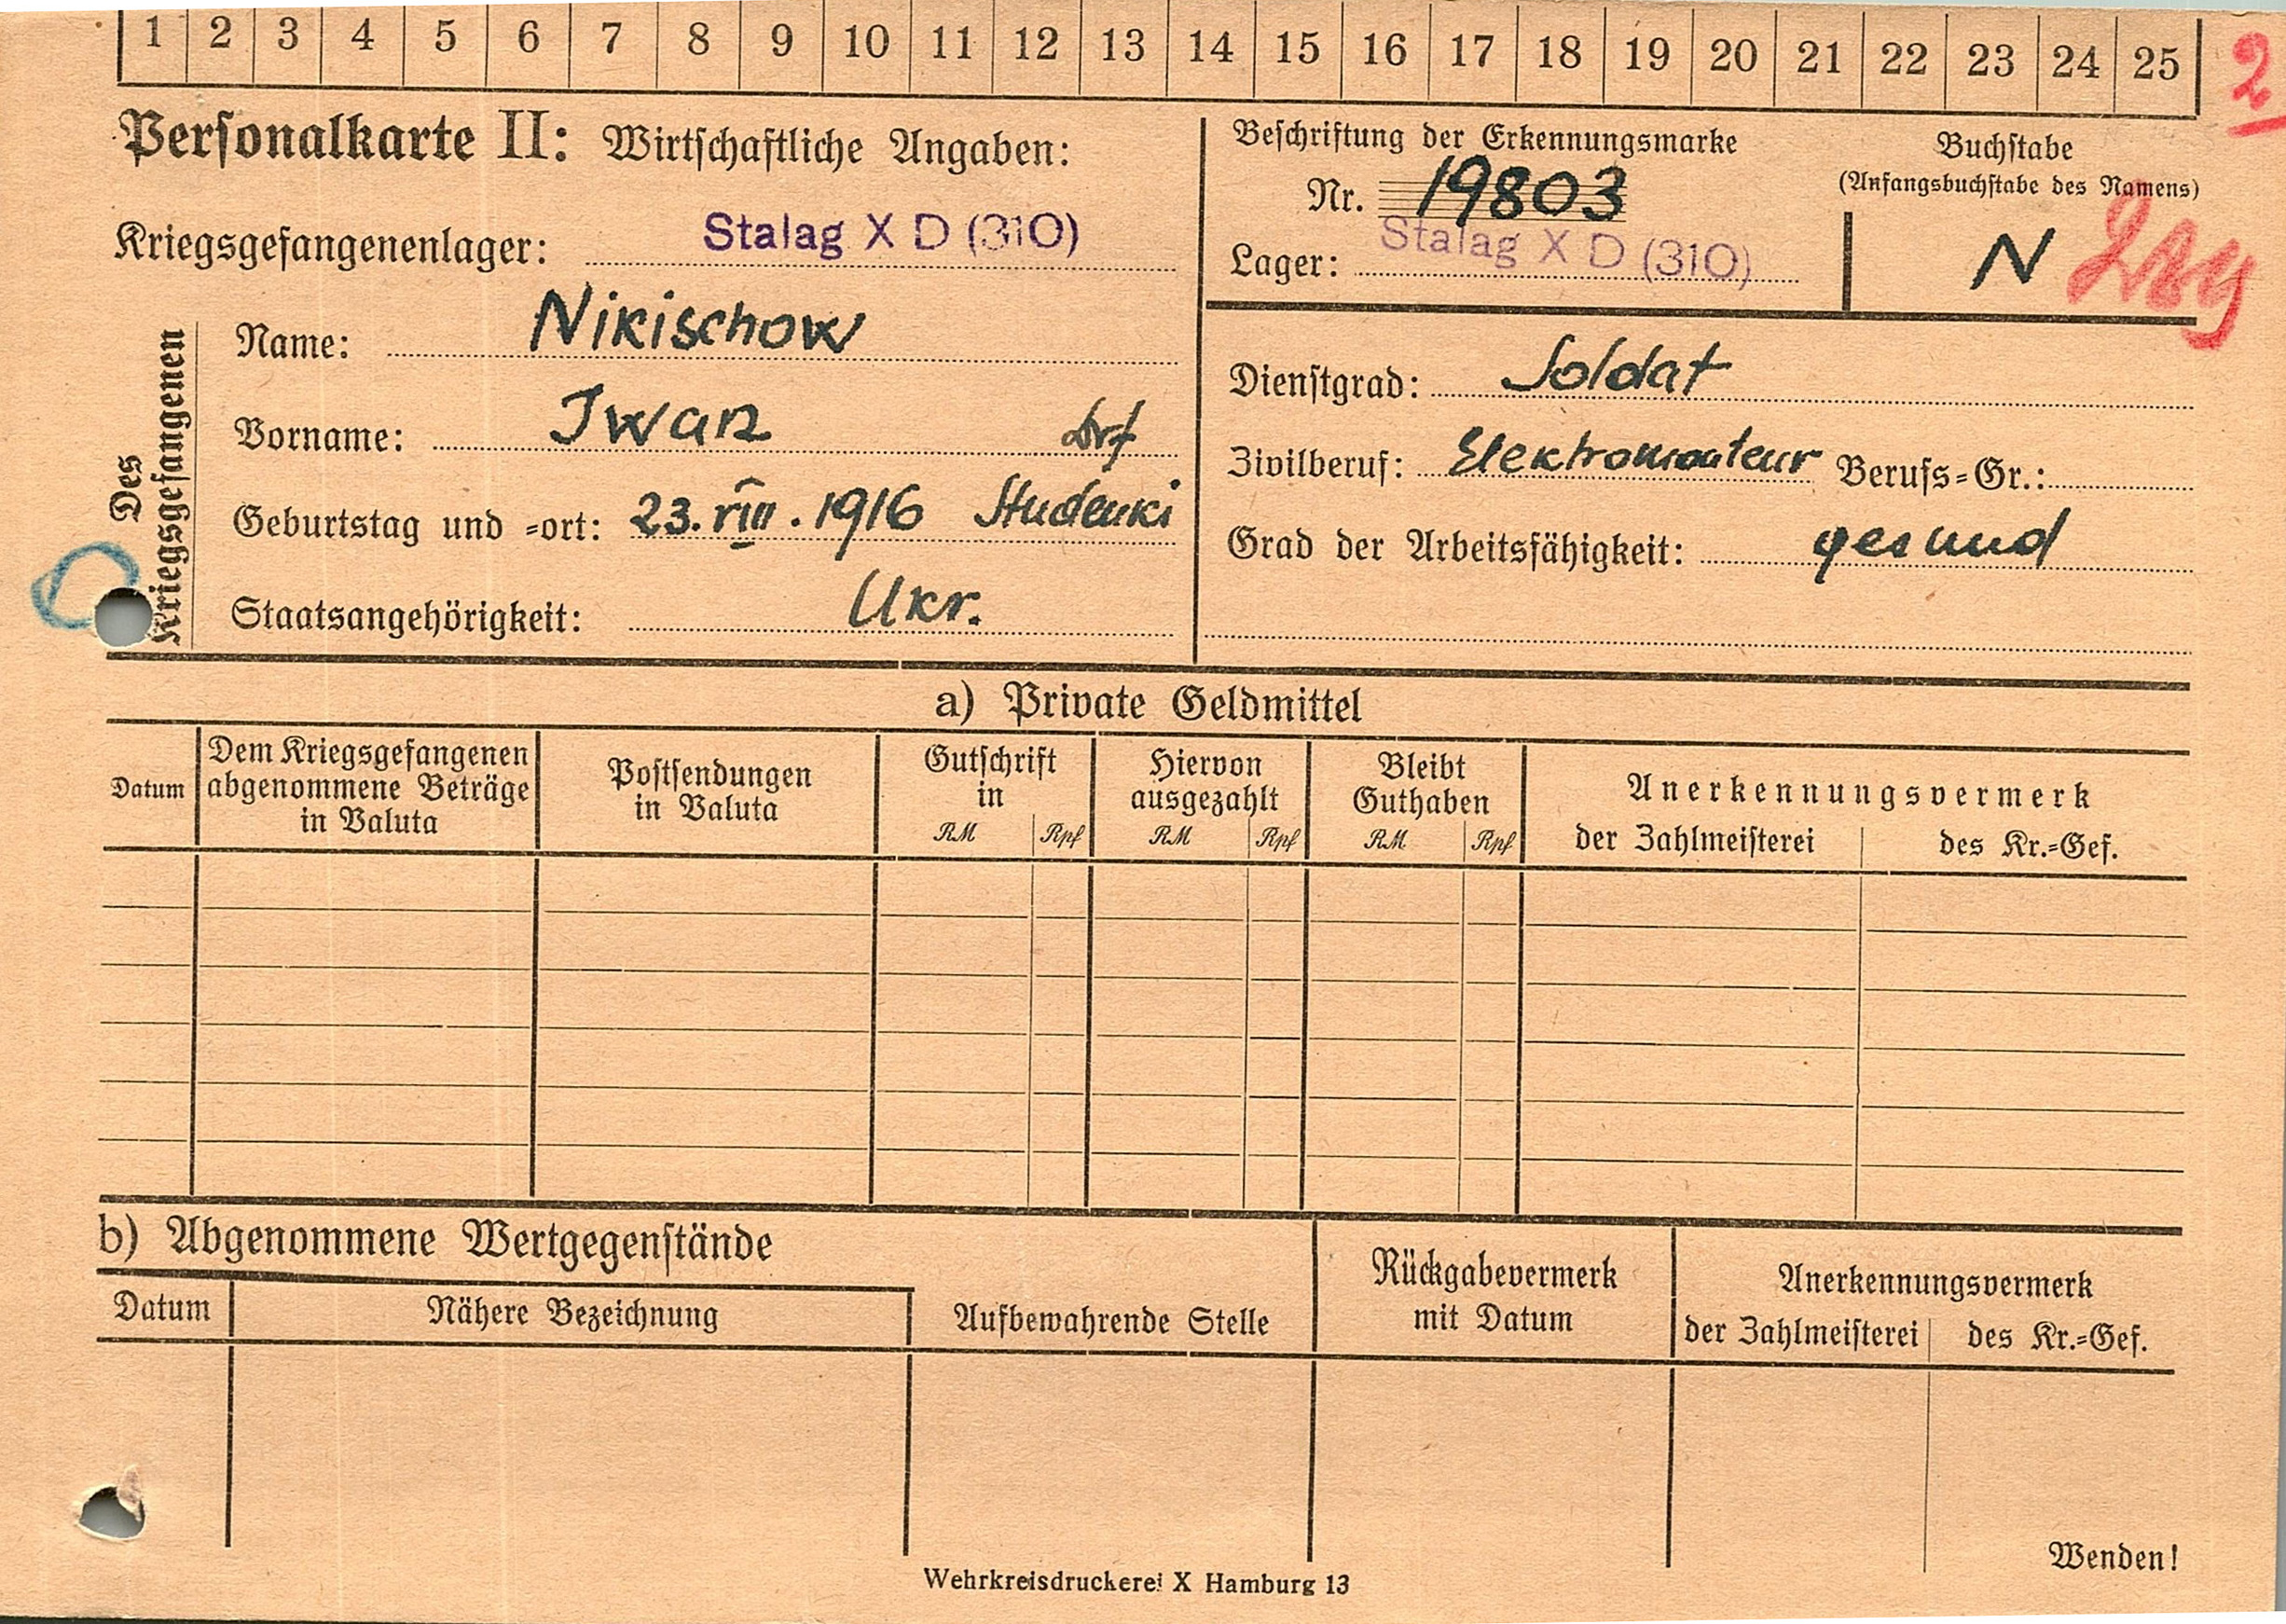 1 2 3 4 5 6 7 8 9 10 11 12 13 14 15 16 17 18 19 20 21 22 23 24 25
2
Personalkarte II: Wirtschaftliche Angaben:
Kriegsgefangenenlager: Stalag X D (310)
Des Kriegsgefangenen
Name: Nikischow
Vorname: Iwan
Drf
Geburtstag und =ort: 23. VIII. 1916 Studenki
Staatsangehörigkeit: Ukr.
Beschriftung der Erkennungsmarke
Nr. 19803
Lager: Stalag X D (310)
Buchstabe
(Anfangsbuchstabe des Namens)
N
Dienstgrad: Soldat
Zivilberuf: Elektromonteur Berufs=Gr.:
Grad der Arbeitsfähigkeit: gesund
a) Private Geldmittel
Datum
Dem Kriegsgefangenen
abgenommene Beträge
in Valuta
Postsendungen
in Valuta
Gutschrift
in
RM Rpf
Hiervon
ausgezahlt
RM Rpf
Bleibt
Guthaben
RM Rpf
Anerkennungsvermerk
der Zahlmeisterei des Kr.=Gef.
b) Abgenommene Wertgegenstände
Datum
Nähere Bezeichnung
Aufbewahrende Stelle
Rückgabevermerk
mit Datum
Anerkennungsvermerk
der Zahlmeisterei des Kr.=Gef.
Wenden!
Wehrkreisdruckerei X Hamburg 13